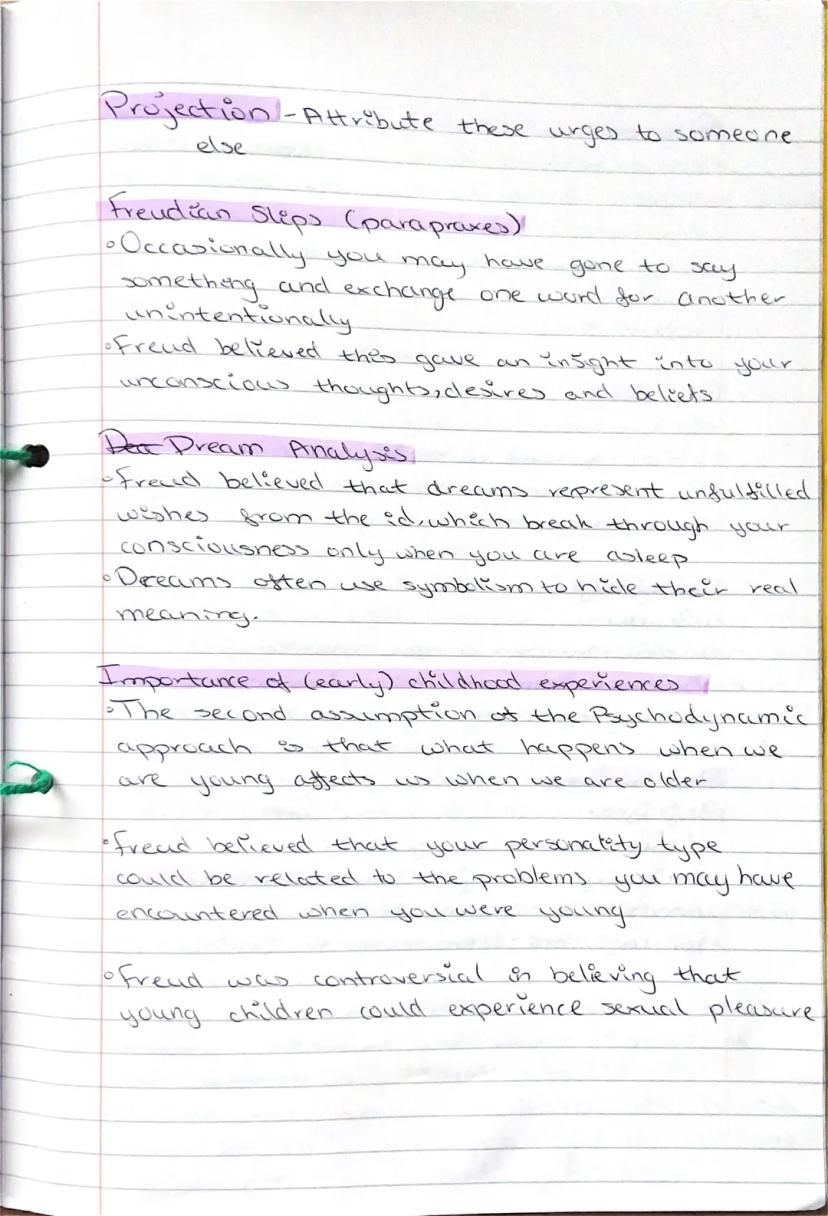 Projection - Attribute these urges to someone
else
Freudian Slips (parapraxes)
◦Occasionally you may have gone to say
something and exchange one word for another
unintentionally
◦Freud believed this gave an insight into your
unconscious thoughts, desires and beliefs
Dream Analysis
◦Freud believed that dreams represent unfulfilled
wishes from the id, which break through your
consciousness only when you are asleep
◦Dreams often use symbolism to hide their real
meaning.
Importance of (early) childhood experiences
◦The second assumption of the Psychodynamic
approach is that what happens when we
are young affects us when we are older
◦Freud believed that your personality type
could be related to the problems you may have
encountered when you were young
◦Freud was controversial in believing that
young children could experience sexual pleasure